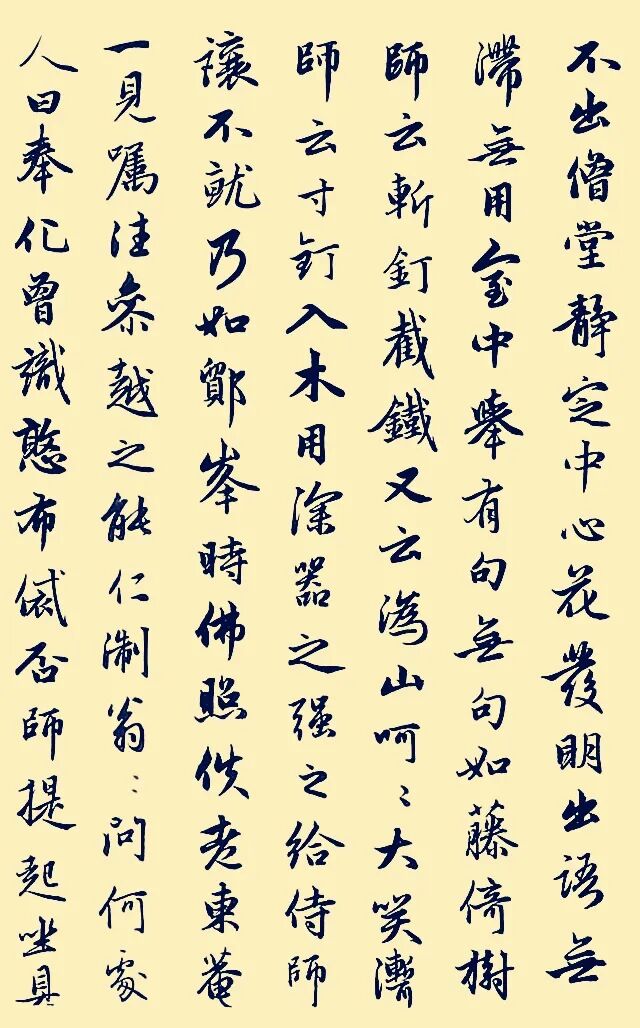 不出僧堂静定中心花發明出語無
滞無用室中舉有句無句如藤倚樹
師云斬釘截鐵又云溈山呵〻大笑漸
師云寸釘入木用深器之强之給侍師
讓不就乃如鄮峯時佛照佚老東菴
一見囑往參越之能仁淛翁〻問何處
人曰奉化曾識憨布袋否師提起坐具